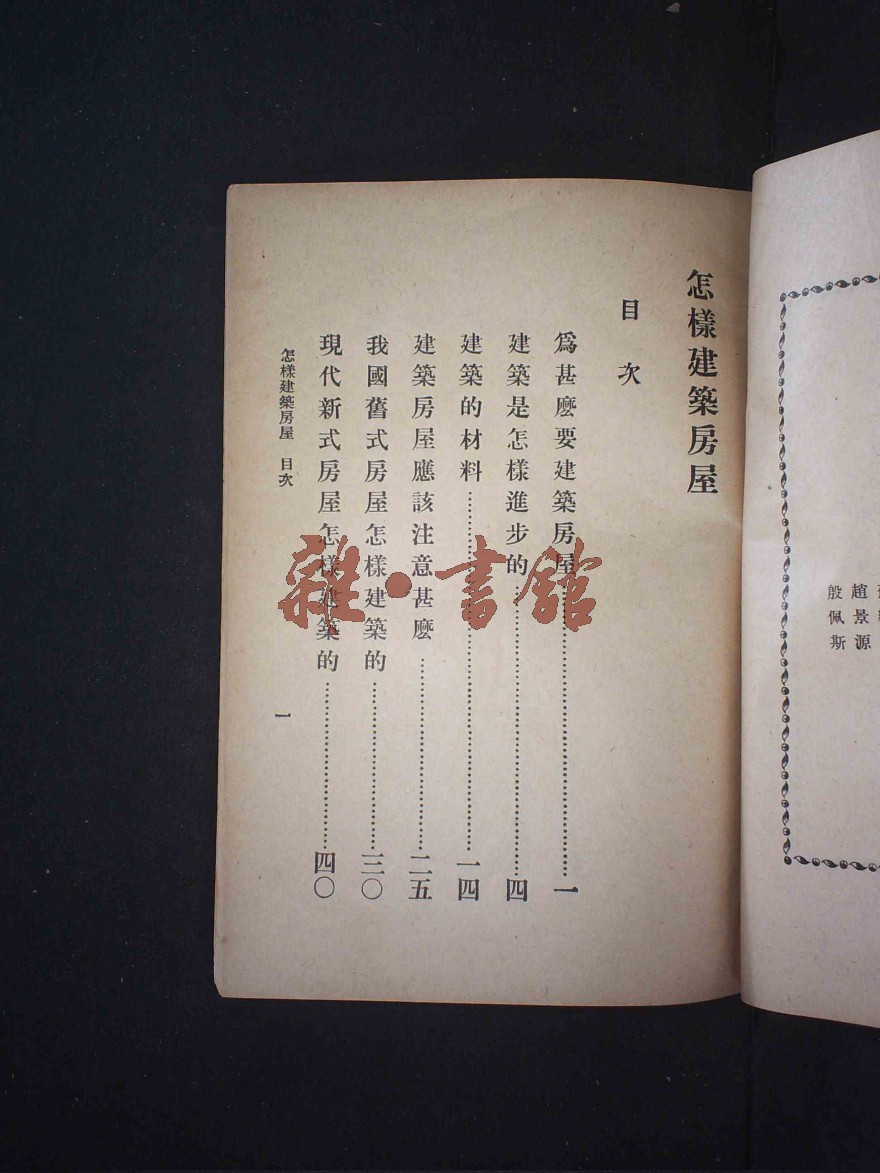 殷佩斯
趙景源
怎樣建築房屋
目次
爲甚麽要建築房屋…………一
建築是怎樣進步的…………四
建築的材料…………一四
建築房屋應該注意甚麽…………二五
我國舊式房屋怎樣建築的…………三〇
現代新式房屋怎樣建築的…………四〇
怎樣建築房屋 目次
一
雜·書館